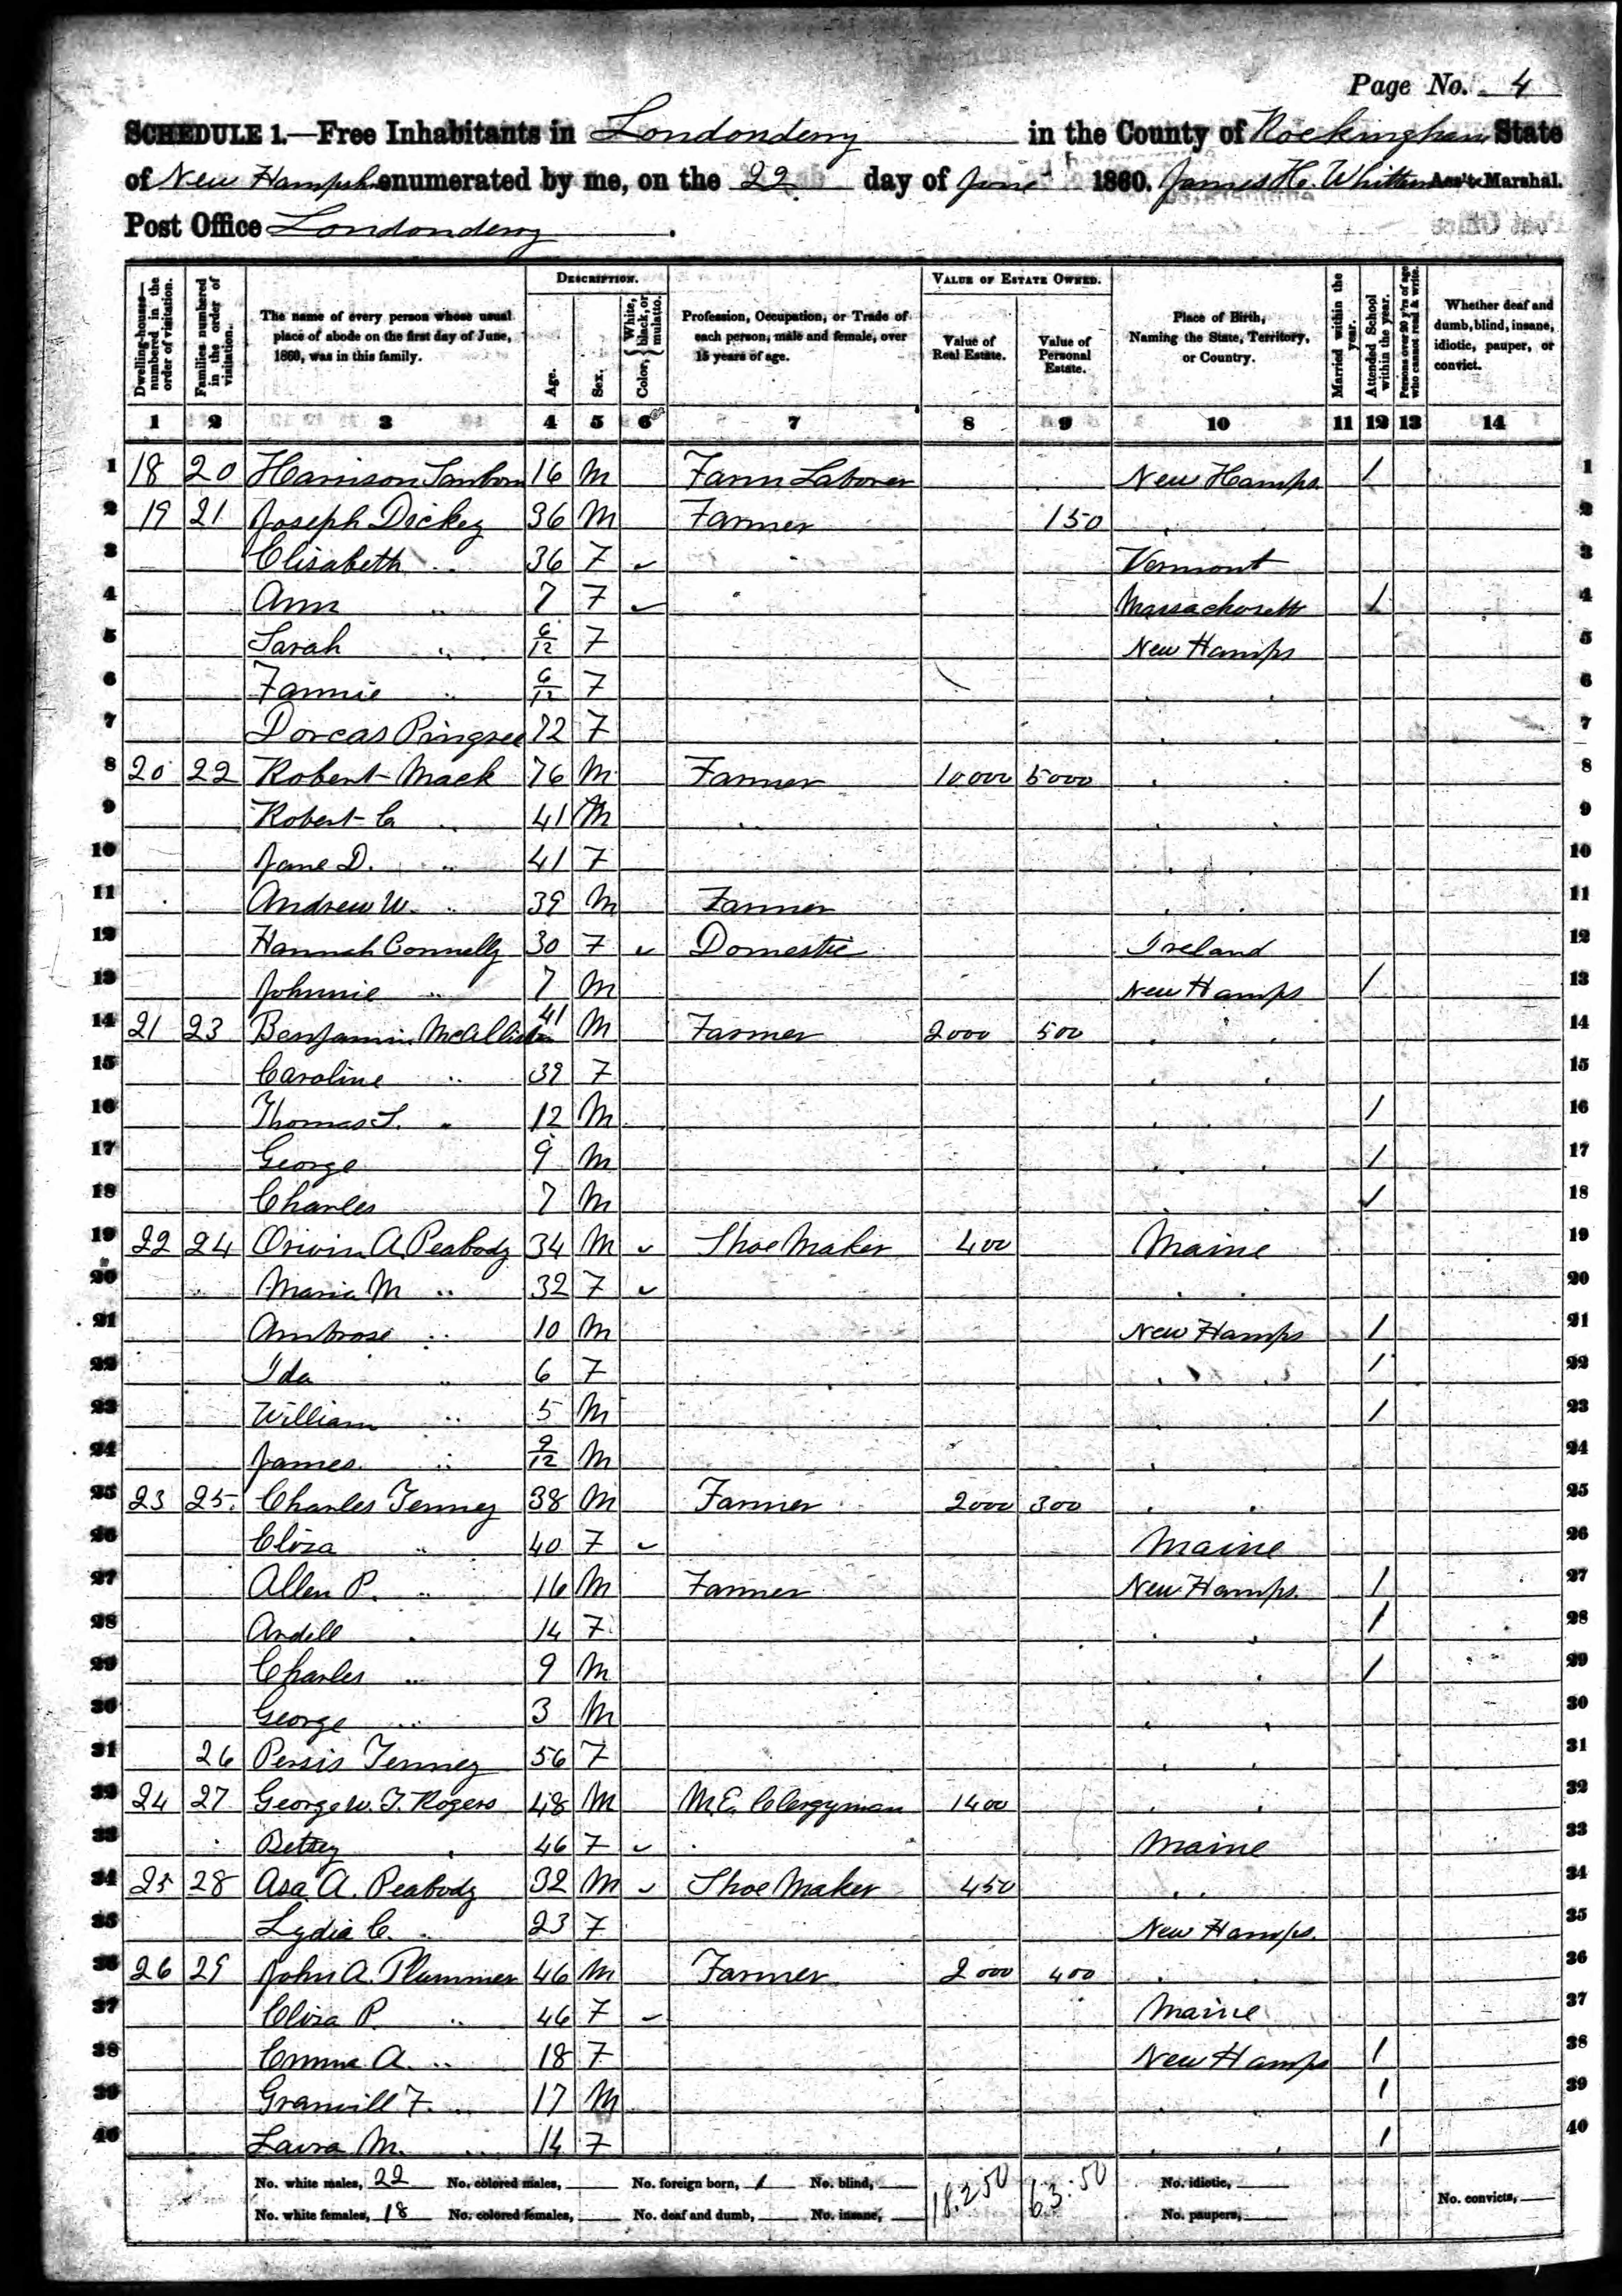 Page No. 4
SCHEDULE 1.—Free Inhabitants in Londonderry in the County of Rockingham State
of New Hampsh enumerated by me, on the 22 day of June 1860. James H. Whittemore Ass't Marshal.
Post Office Londonderry.
DESCRIPTION. VALUE OF ESTATE OWNED.
Dwelling-houses—numbered in the order of visitation. Families numbered in the order of visitation. The name of every person whose usual place of abode on the first day of June, 1860, was in this family. Age. Sex. Color, { White, black, or mulatto. Profession, Occupation, or Trade of each person, male and female, over 15 years of age. Value of Real Estate. Value of Personal Estate. Place of Birth, Naming the State, Territory, or Country. Married within the year. Attended School within the year. Persons over 20 y'rs of age who cannot read & write. Whether deaf and dumb, blind, insane, idiotic, pauper, or convict.
1 2 3 4 5 6 7 8 9 10 11 12 13 14
1 18 20 Harrison Sanborn 16 M Farm Laborer New Hamps. / 1
2 19 21 Joseph Dickey 36 M Farmer 150 . . 2
3 Elisabeth " 36 F ✓ Vermont 3
4 Ann " 7 F ✓ Massachusetts / 4
5 Sarah " 6/12 F New Hamps 5
6 Fannie " 6/12 F . . 6
7 Dorcas Pingree 72 F . . 7
8 20 22 Robert Mack 76 M Farmer 10000 5000 . . 8
9 Robert C " 41 M " . . 9
10 Jane D. " 41 F . . 10
11 Andrew W. " 39 M Farmer . . 11
12 Hannah Connelly 30 F ✓ Domestic Ireland 12
13 Johnnie " 7 M New Hamps / 13
14 21 23 Benjamin McAllister 41 M Farmer 2000 500 . . 14
15 Caroline " 39 F . . 15
16 Thomas S. " 12 M . . / 16
17 George 9 M . . / 17
18 Charles 7 M . . / 18
19 22 24 Orivin A. Peabody 34 M ✓ Shoe Maker 400 Maine 19
20 Maria M " 32 F ✓ . . 20
21 Ambrose " 10 M New Hamps / 21
22 Ida " 6 F . . / 22
23 William " 5 M . . / 23
24 James " 9/12 M . . 24
25 23 25 Charles Tenney 38 M Farmer 2000 300 . . 25
26 Eliza " 40 F ✓ Maine 26
27 Allen P. " 16 M Farmer New Hamps. / 27
28 Ardell " 14 F . . / 28
29 Charles " 9 M . . / 29
30 George " 3 M . . 30
31 26 Persis Tenney 56 F . . 31
32 24 27 George W. T. Rogers 48 M M.E. Clergyman 1400 . . 32
33 Betsey " 46 F ✓ Maine 33
34 25 28 Asa A. Peabody 32 M ✓ Shoe Maker 450 . . 34
35 Lydia C. " 23 F New Hamps. 35
36 26 29 John A. Plummer 46 M Farmer 2000 400 . . 36
37 Eliza P. " 46 F ✓ Maine 37
38 Emma A. " 18 F New Hamps / 38
39 Granvill F. " 17 M . . / 39
40 Laura M. " 14 F . . / 40
No. white males, 22 No. colored males, No. foreign born, 1 No. blind, 18.250 63.50 No. idiotic,
No. white females, 18 No. colored females, No. deaf and dumb, No. insane, No. paupers, No. convicts,